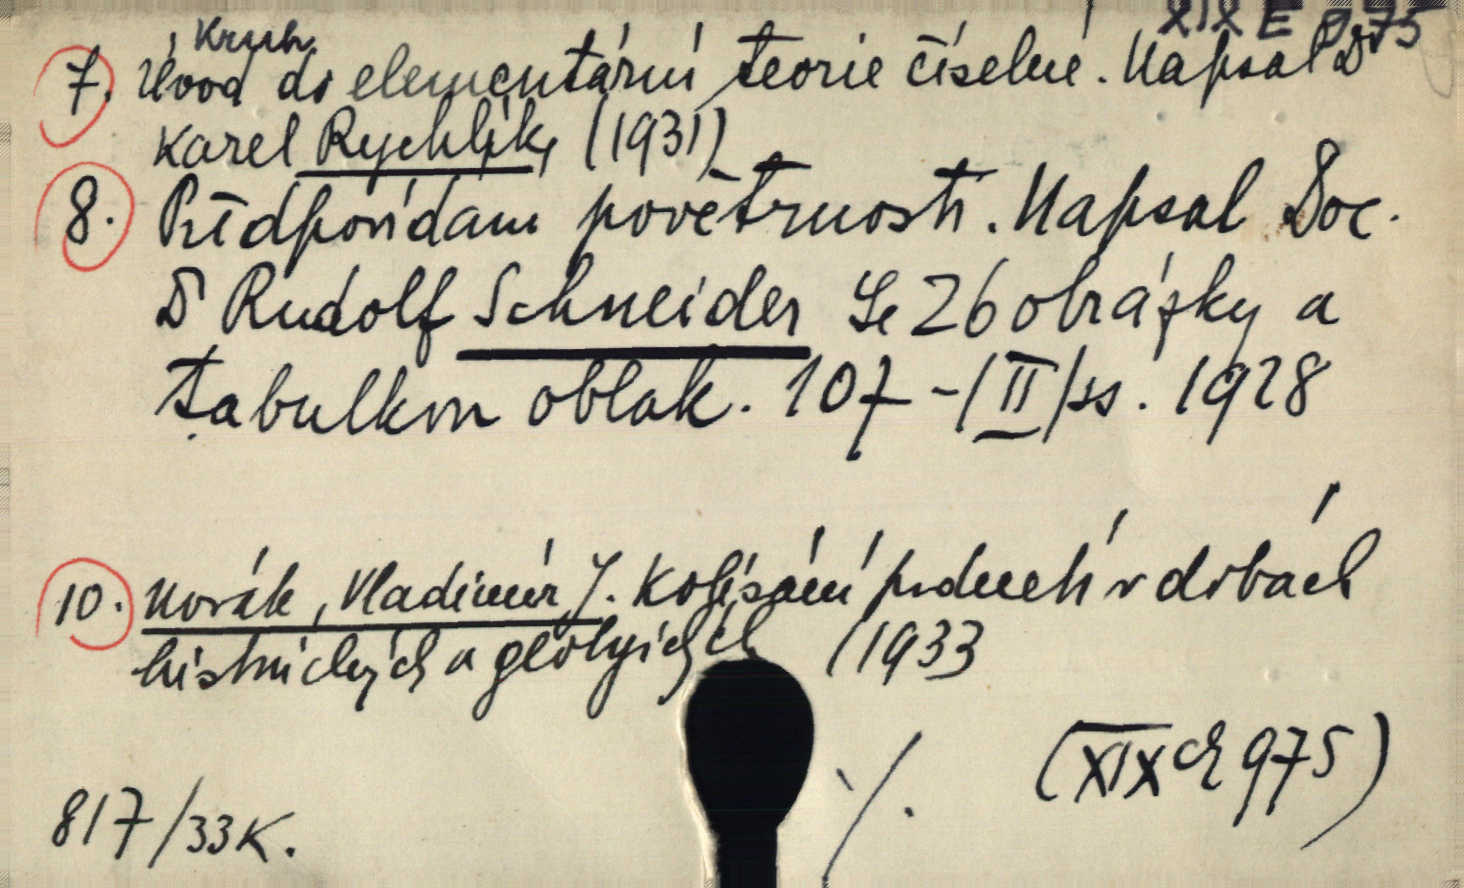 XIX E 975
Kruh
7. Úvod do elementární teorie číselné. Napsal Dr
Karel Rychlík, (1931)
8. Předpovídání povětrnosti. Napsal Doc.
Dr Rudolf Schneider Se 26 obrázky a
tabulkou oblak. 107 - (II) ss. 1928
10. Novák, Vladimír J. Kolísání podnebí v dobách
historických a geologických (1933
(XIX ch 975)
817/33K.